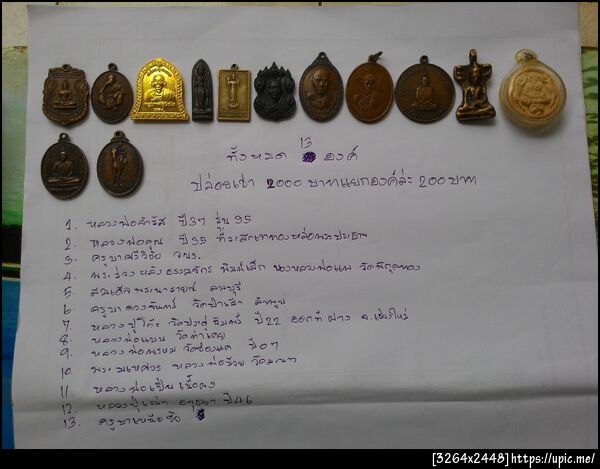 13
ทั้งหมด องค์
ปล่อยเช่า 2000 บาทแยกองค์ล่ะ 200 บาท
1. หลวงพ่อสำริส ปี37 รุ่น 95
2. หลวงพ่อคูณ ปี35 ที่ระลึกเททองหล่อพระประธาน
3. ครูบาศรีวิชัย
4. พระร่วง หลังธรรมจักร พิมพ์เล็ก ของหลวงพ่อแพ วัดพิกุลทอง
5. สมเด็จพระนารายณ์ ลพบุรี
6. ครูบาดวงจันทร์ วัดป่าเส้า ลำพูน
7. หลวงปู่โต๊ะ วัดประดู่ฉิมพลี ปี22 ออกที่ฝาง จ.เชียงใหม่
8. หลวงพ่อแบน วัด
9. หลวงพ่อพรหม วัดช่องแค ปี07
10. พระ หลวงพ่อ วัด
11. หลวงพ่อเปิ่น เนื้อผง
12. หลวงปู่ อยุธยา ปี46
13. ครูบาเหนือชัย
[3264x2448]https://upic.me/